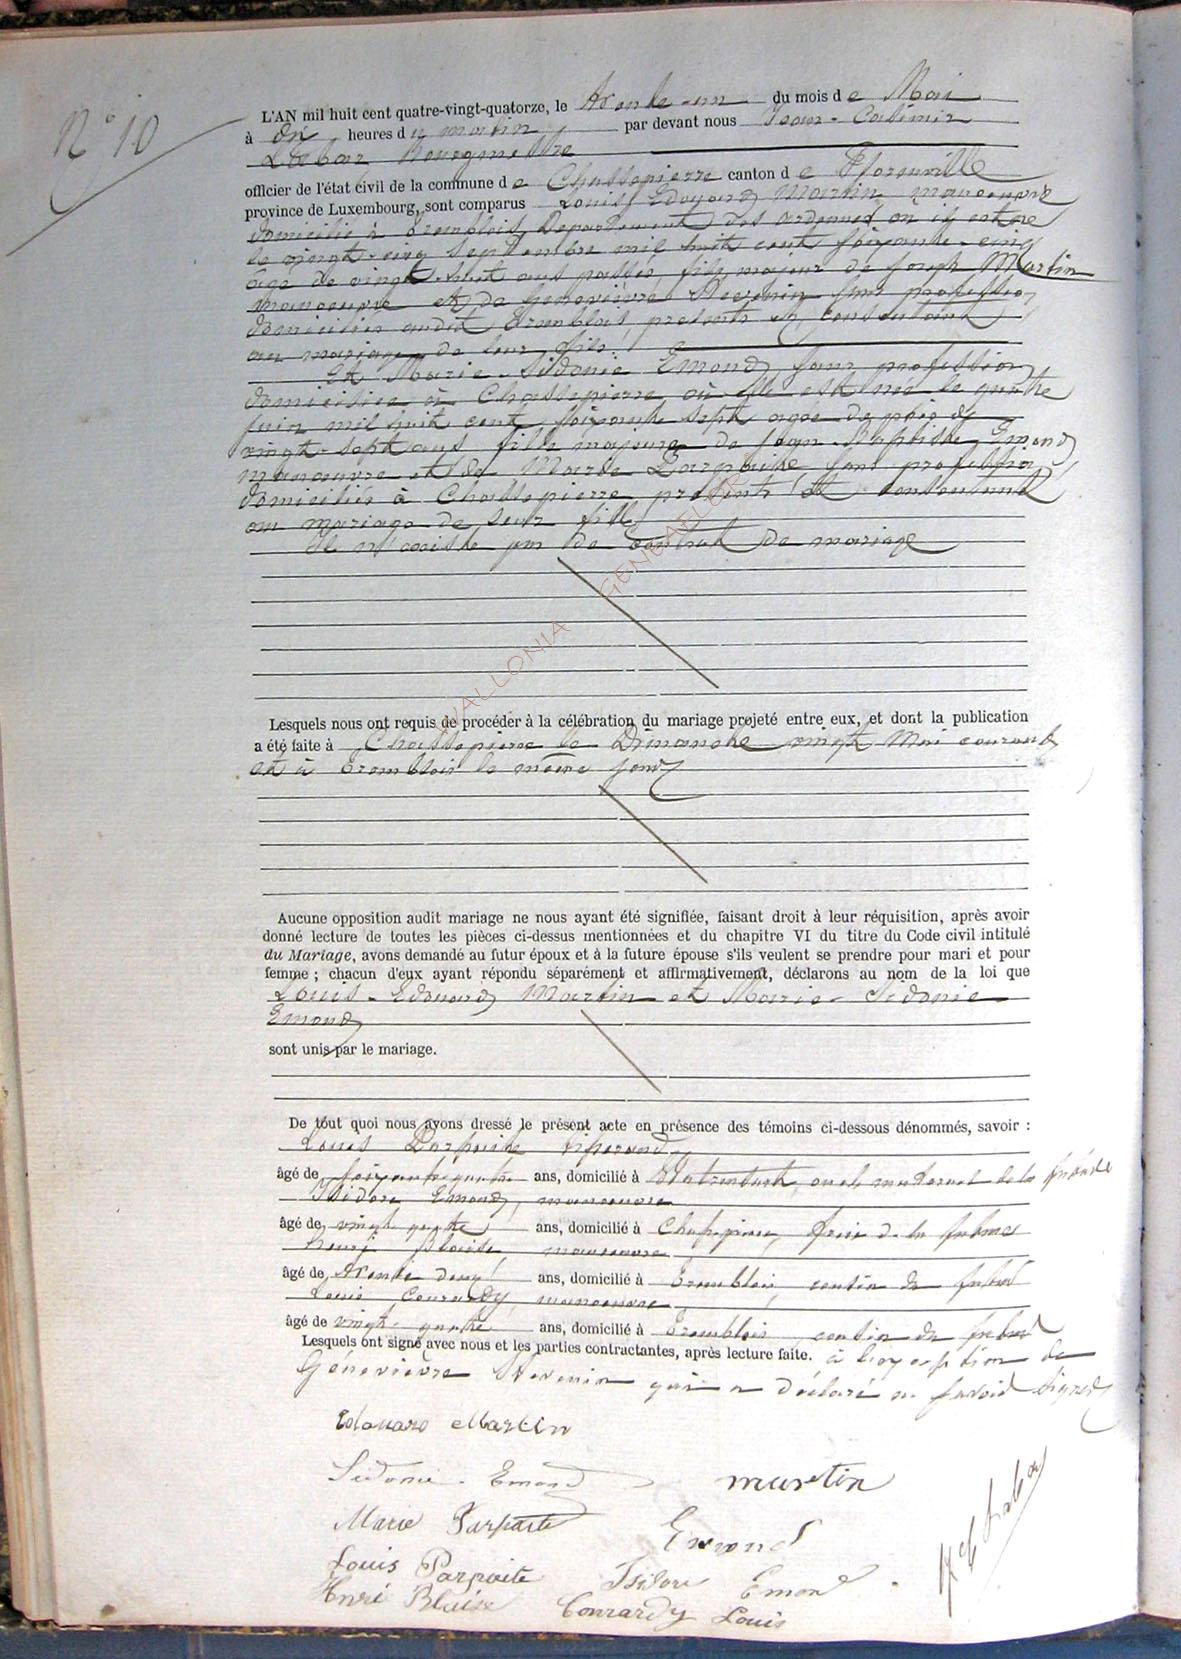 N° 10
L'AN mil huit cent quatre-vingt-quatorze, le trente-un du mois de Mai
à dix heures du matin par devant nous Jean-Casimir
Bourgmestre
officier de l'état civil de la commune de Chassepierre canton de Florenville
province de Luxembourg, sont comparus Louis Edouard Martin manoeuvre
domicilié à Tremblois Département des Ardennes où il est né
le vingt-cinq septembre mil huit cent soixante-cinq
âgé de vingt-huit ans passés fils majeur de Joseph Martin
manoeuvre et de Geneviève sans profession
domiciliés audit Tremblois présents et consentant
au mariage de leur fils
Et Marie-Sidonie Emond, sans profession
domiciliée à Chassepierre où elle est née le quatre
juin mil huit cent soixante sept agée de près de
vingt-sept ans fille majeure de Jean-Baptiste Emond
manoeuvre et de Marie Parpaite sans profession
domiciliés à Chassepierre présents et consentant
au mariage de leur fille
Il n'existe pas de contrat de mariage
WALLONIA GENEAFLOR
Lesquels nous ont requis de procéder à la célébration du mariage projeté entre eux, et dont la publication
a été faite à Chassepierre le Dimanche vingt Mai courant
et à Tremblois le même jour
Aucune opposition audit mariage ne nous ayant été signifiée, faisant droit à leur réquisition, après avoir
donné lecture de toutes les pièces ci-dessus mentionnées et du chapitre VI du titre du Code civil intitulé
du Mariage, avons demandé au futur époux et à la future épouse s'ils veulent se prendre pour mari et pour
femme ; chacun d'eux ayant répondu séparément et affirmativement, déclarons au nom de la loi que
Louis-Edouard Martin et Marie-Sidonie
Emond
sont unis par le mariage.
De tout quoi nous avons dressé le présent acte en présence des témoins ci-dessous dénommés, savoir :
Louis Parpaite
âgé de soixante quatre ans, domicilié à oncle maternel de la
Isidore Emond, manoeuvre
âgé de vingt quatre ans, domicilié à Chassepierre, frère de la future
Henri Blaise, manoeuvre
âgé de trente deux ans, domicilié à Tremblois, cousin du futur
Louis Conrardy, manoeuvre
âgé de vingt-quatre ans, domicilié à Tremblois cousin du futur
Lesquels ont signé avec nous et les parties contractantes, après lecture faite. à l'exception de
Geneviève qui a déclaré ne savoir signer
Edouard Martin
Sidonie Emond
martin
Marie Parpaite
Emond
Louis Parpaite
Isidore Emond
Henri Blaise
Conrardy Louis